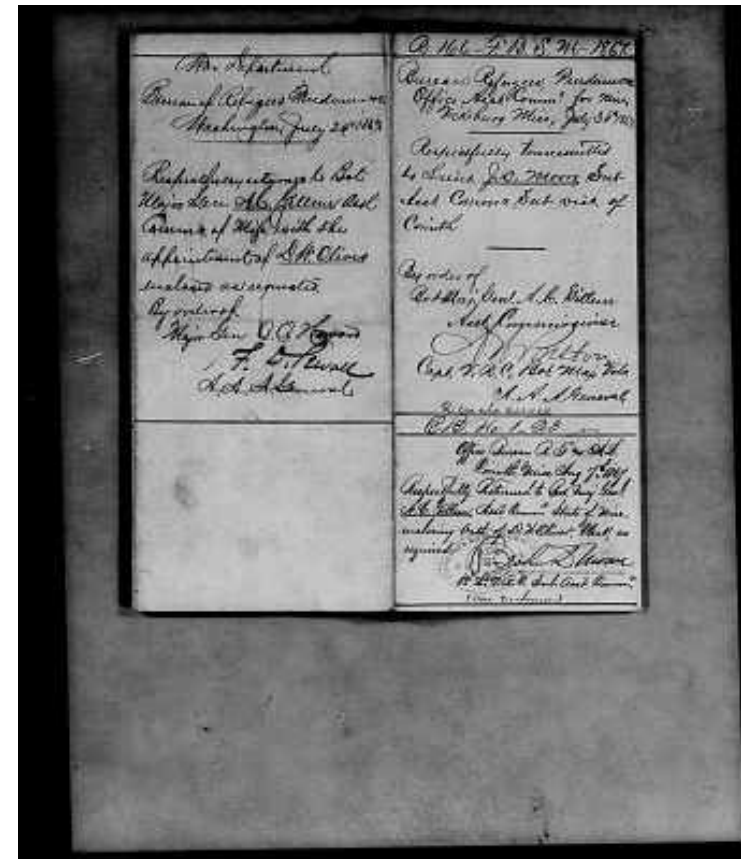 War Department
Bureau of Refugees Freedmen &c
Washington, July 24th 1867
Respectfully returned to Bvt
Major Gen A.C. Gillem Asst
Comms of Miss with the
appointment of S.W. Oliver
enclosed as requested.
By order of
Major Gen O.O. Howard
F. D. Sewall
A. A. A General
B. 166 - F.B.S.M - 1867
Bureau Refugees Freedmen
Office Asst Comm' for Miss,
Vicksburg Miss, July 30th 1867
Respectfully transmitted
to Lieut J.S. Moore Sub
Asst Comms Sub Dist of
Corinth
By order of
Bvt Maj Genl A.C. Gillem
Asst Commissioner
Capt V.R.C. Bvt Maj Vols
A. A. A General
Office Bureau R. F. & A. L.
Corinth Miss Aug 7th 1867
Respectfully Returned to Bvt Maj Genl
A.C. Gillem, Asst Comm' State of Miss
enclosing Oath of as
required
John S. Moore
Sub Asst Comm'